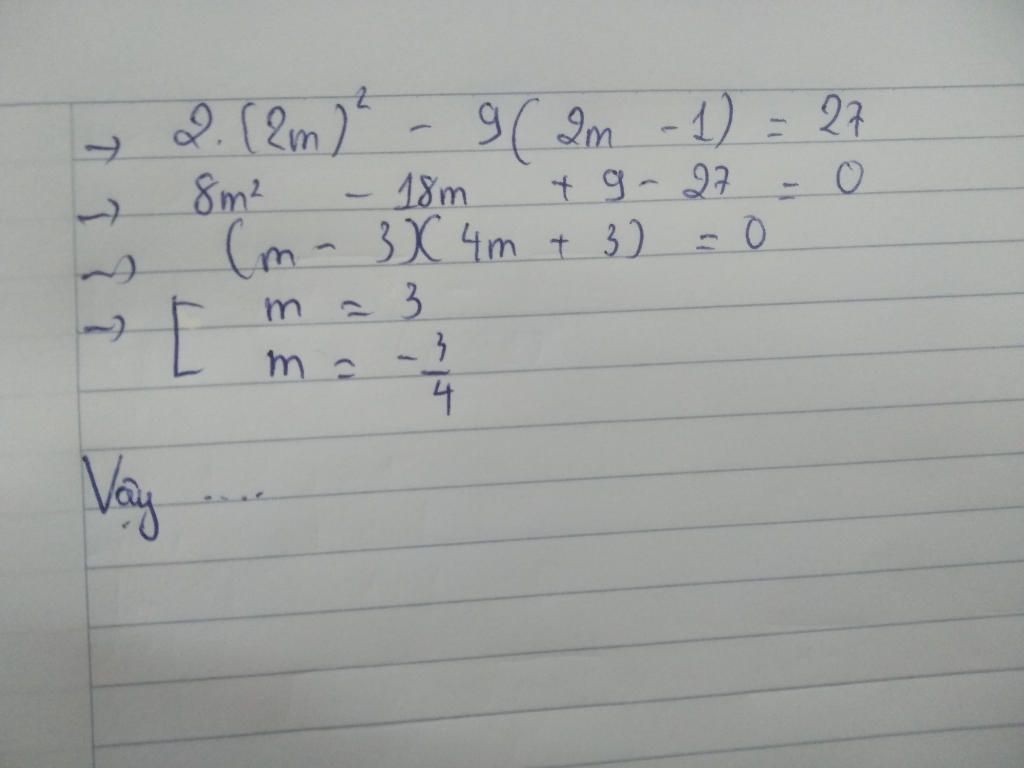 → 2.(2m)² - 9(2m - 1) = 27
→ 8m² - 18m + 9 - 27 = 0
→ (m - 3)(4m + 3) = 0
→ [ m = 3
m = -3/4
Vậy ....